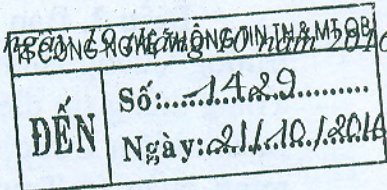 ngày 19 tháng 10 năm 2016
TT CÔNG NGHỆ THÔNG TIN TN & MT QB
ĐẾN
Số:.....1429..........
Ngày:21/10/2016